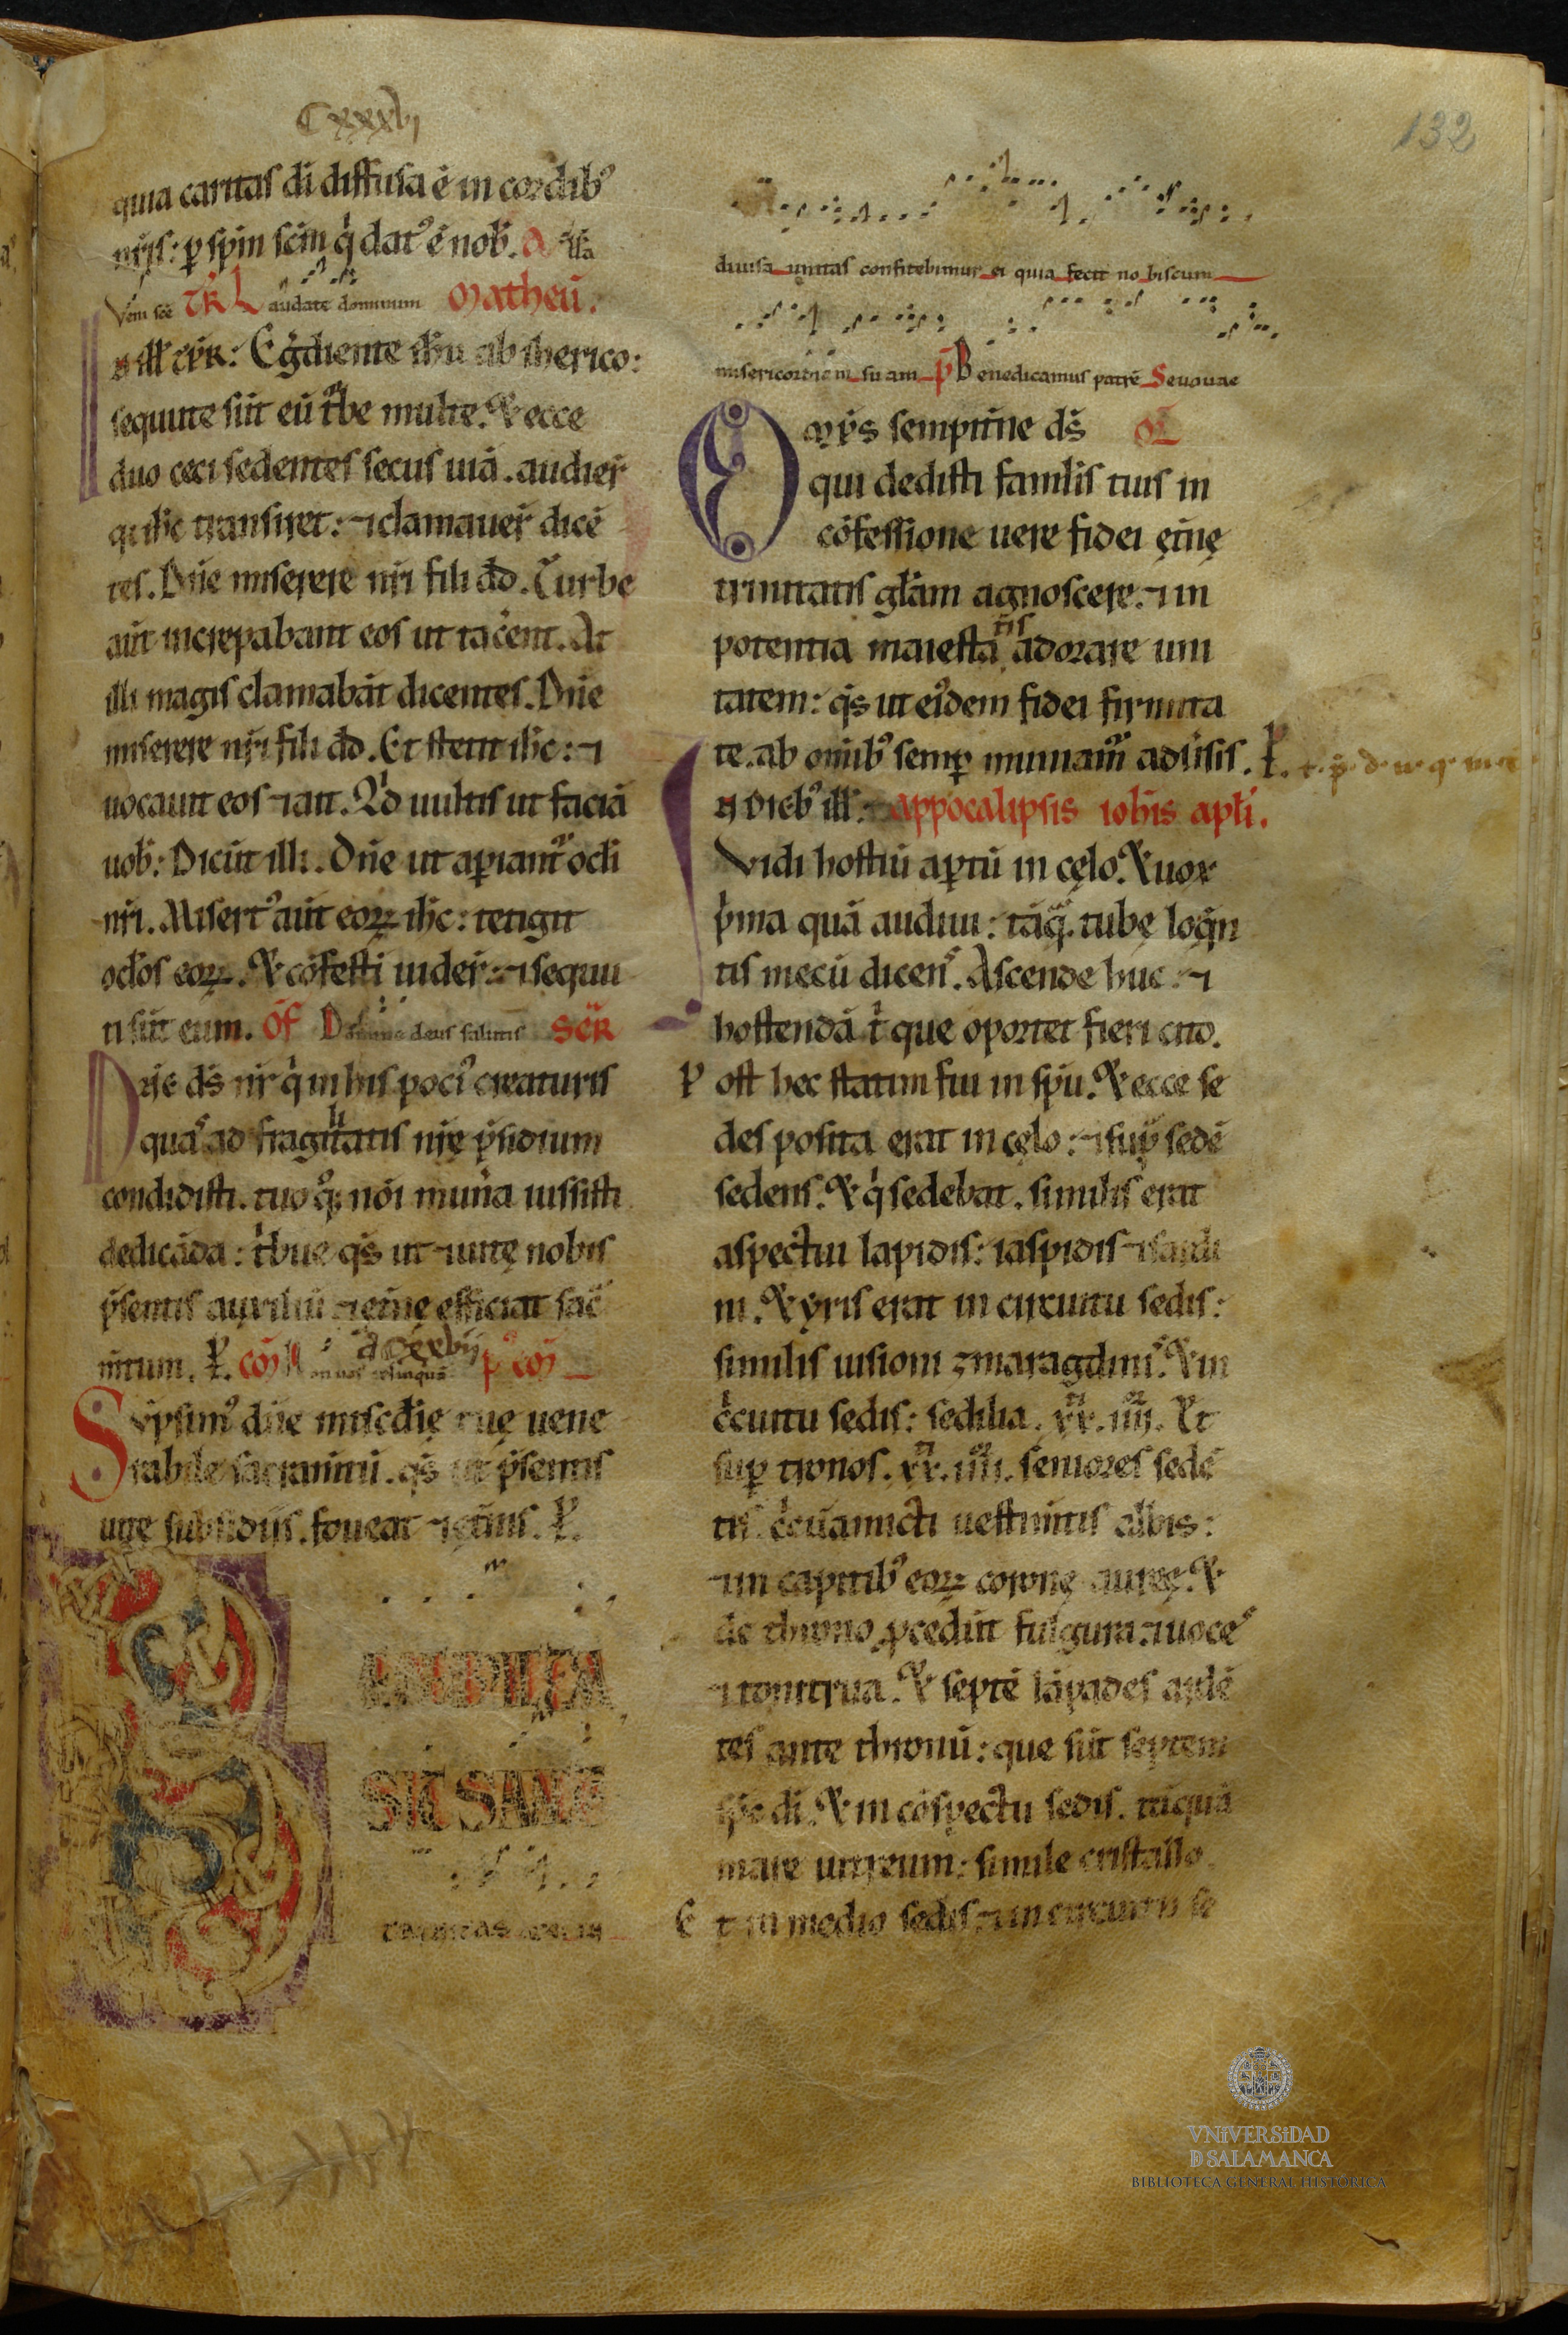 Cxxxvi
132
quia caritas di diffusa ē in cordib᷒
nr̄is: p spm̄ scm̄ q̇ dat᷒ ē nob̄. A
Veni scē TR Laudate dominum Matheū.
n illˀ tp̄r. Egdiente ihu ab iherico:
sequute sūt eū tbe multe. Et ecce
duo ceci sedentes secus uiā. audier̄
q ihc transiret: ⁊ clamauer̄ dicē
tes. Dn̄e miserere nr̄i fili dd. Turbe
aūt increpabant eos ut tacēent. At
illi magis clamabāt dicentes. Dn̄e
miserere nr̄i fili dd. Et stetit ihc: ⁊
uocauit eos ⁊ ait. Qd uultis ut faciā
uob̄: Dicūt illi. Dn̄e ut apiant᷒ ocli
nr̄i. Misert᷒ aūt eoꝝ ihc: tetigit
oclos eoꝝ. Et cōfesti uider̄: ⁊ sequu
ti sūt eum. OF Domine deus salutis SCR
Dn̄e ds̄ nr̄ q̇ in his poci᷒ creaturis
quas ad fragilitatis nr̄ę p̄sidium
condidisti. tuo q᷒q; nōi mun̄a iussisti
dedicāda: tbue qs̄ ut ⁊ uitę nobis
p̄sentis auxiliū ⁊ etn̄e efficiat sac̄
m̄tum. P. CŌ Non uos relinquā P᷒ CŌ
Sūpsim᷒ dn̄e miscdię tuę uene
rabile sacram̄tū. qs̄ ut p̄sentis
uitę subsidiis. foueat ⁊ ętn̄is. P.
SIT SANC
trinitas
diuisa unitas confitebimur ei quia fecit nobiscum
misericordiam suam P̄ Benedicamus patrē Seuouae
Omp̄s sempitn̄e ds̄ OR
qui dedisti famlis tuis in
cōfessione uere fidei ętn̄ę
trinitatis glam agnoscere. ⁊ in
potentia maiestatis adorare uni
tatem: qs̄ ut ei᷒dem fidei firmita
te. ab omīb᷒ semp muniam᷒ aduˀsis. P.
n dieb᷒ illˀ. appocalipsis iohis apli.
Vidi hostiū aptū in cęlo. Et uox
p̄ma quā audiui: tāq̄. tubę loqn̄
tis mecū dicens. Ascende huc: ⁊
hostendā t̄ que oportet fieri cito.
Post hec statim fui in spū. Et ecce se
des posita erat in cęlo: ⁊ sup sedē
sedens. Et q̇ sedebat. similis erat
aspectui lapidis: iaspidis ⁊ sardi
ni. Et yris erat in circuitu sedis:
similis uisioni zmaragdinis. Et in
ccuitu sedis: sedilia. xx. iiii. Et
sup tronos. xx. iiii. seniores sedē
tis. ccūamicti uestim̄tis albis:
⁊ in capitib᷒ eoꝝ coronę aureę. Et
de throno pcedūt fulgura. ⁊ uoces
⁊ tonitrua. Et septē lāpades ardē
tes ante thronū: que sūt septem
sps di. Et in cōspectu sedis. tāquā
mare uitreum: simile cristallo.
Et in medio sedis: ⁊ in circuitu se
VNIVERSIDAD
D SALAMANCA
BIBLIOTECA GENERAL HISTÓRICA